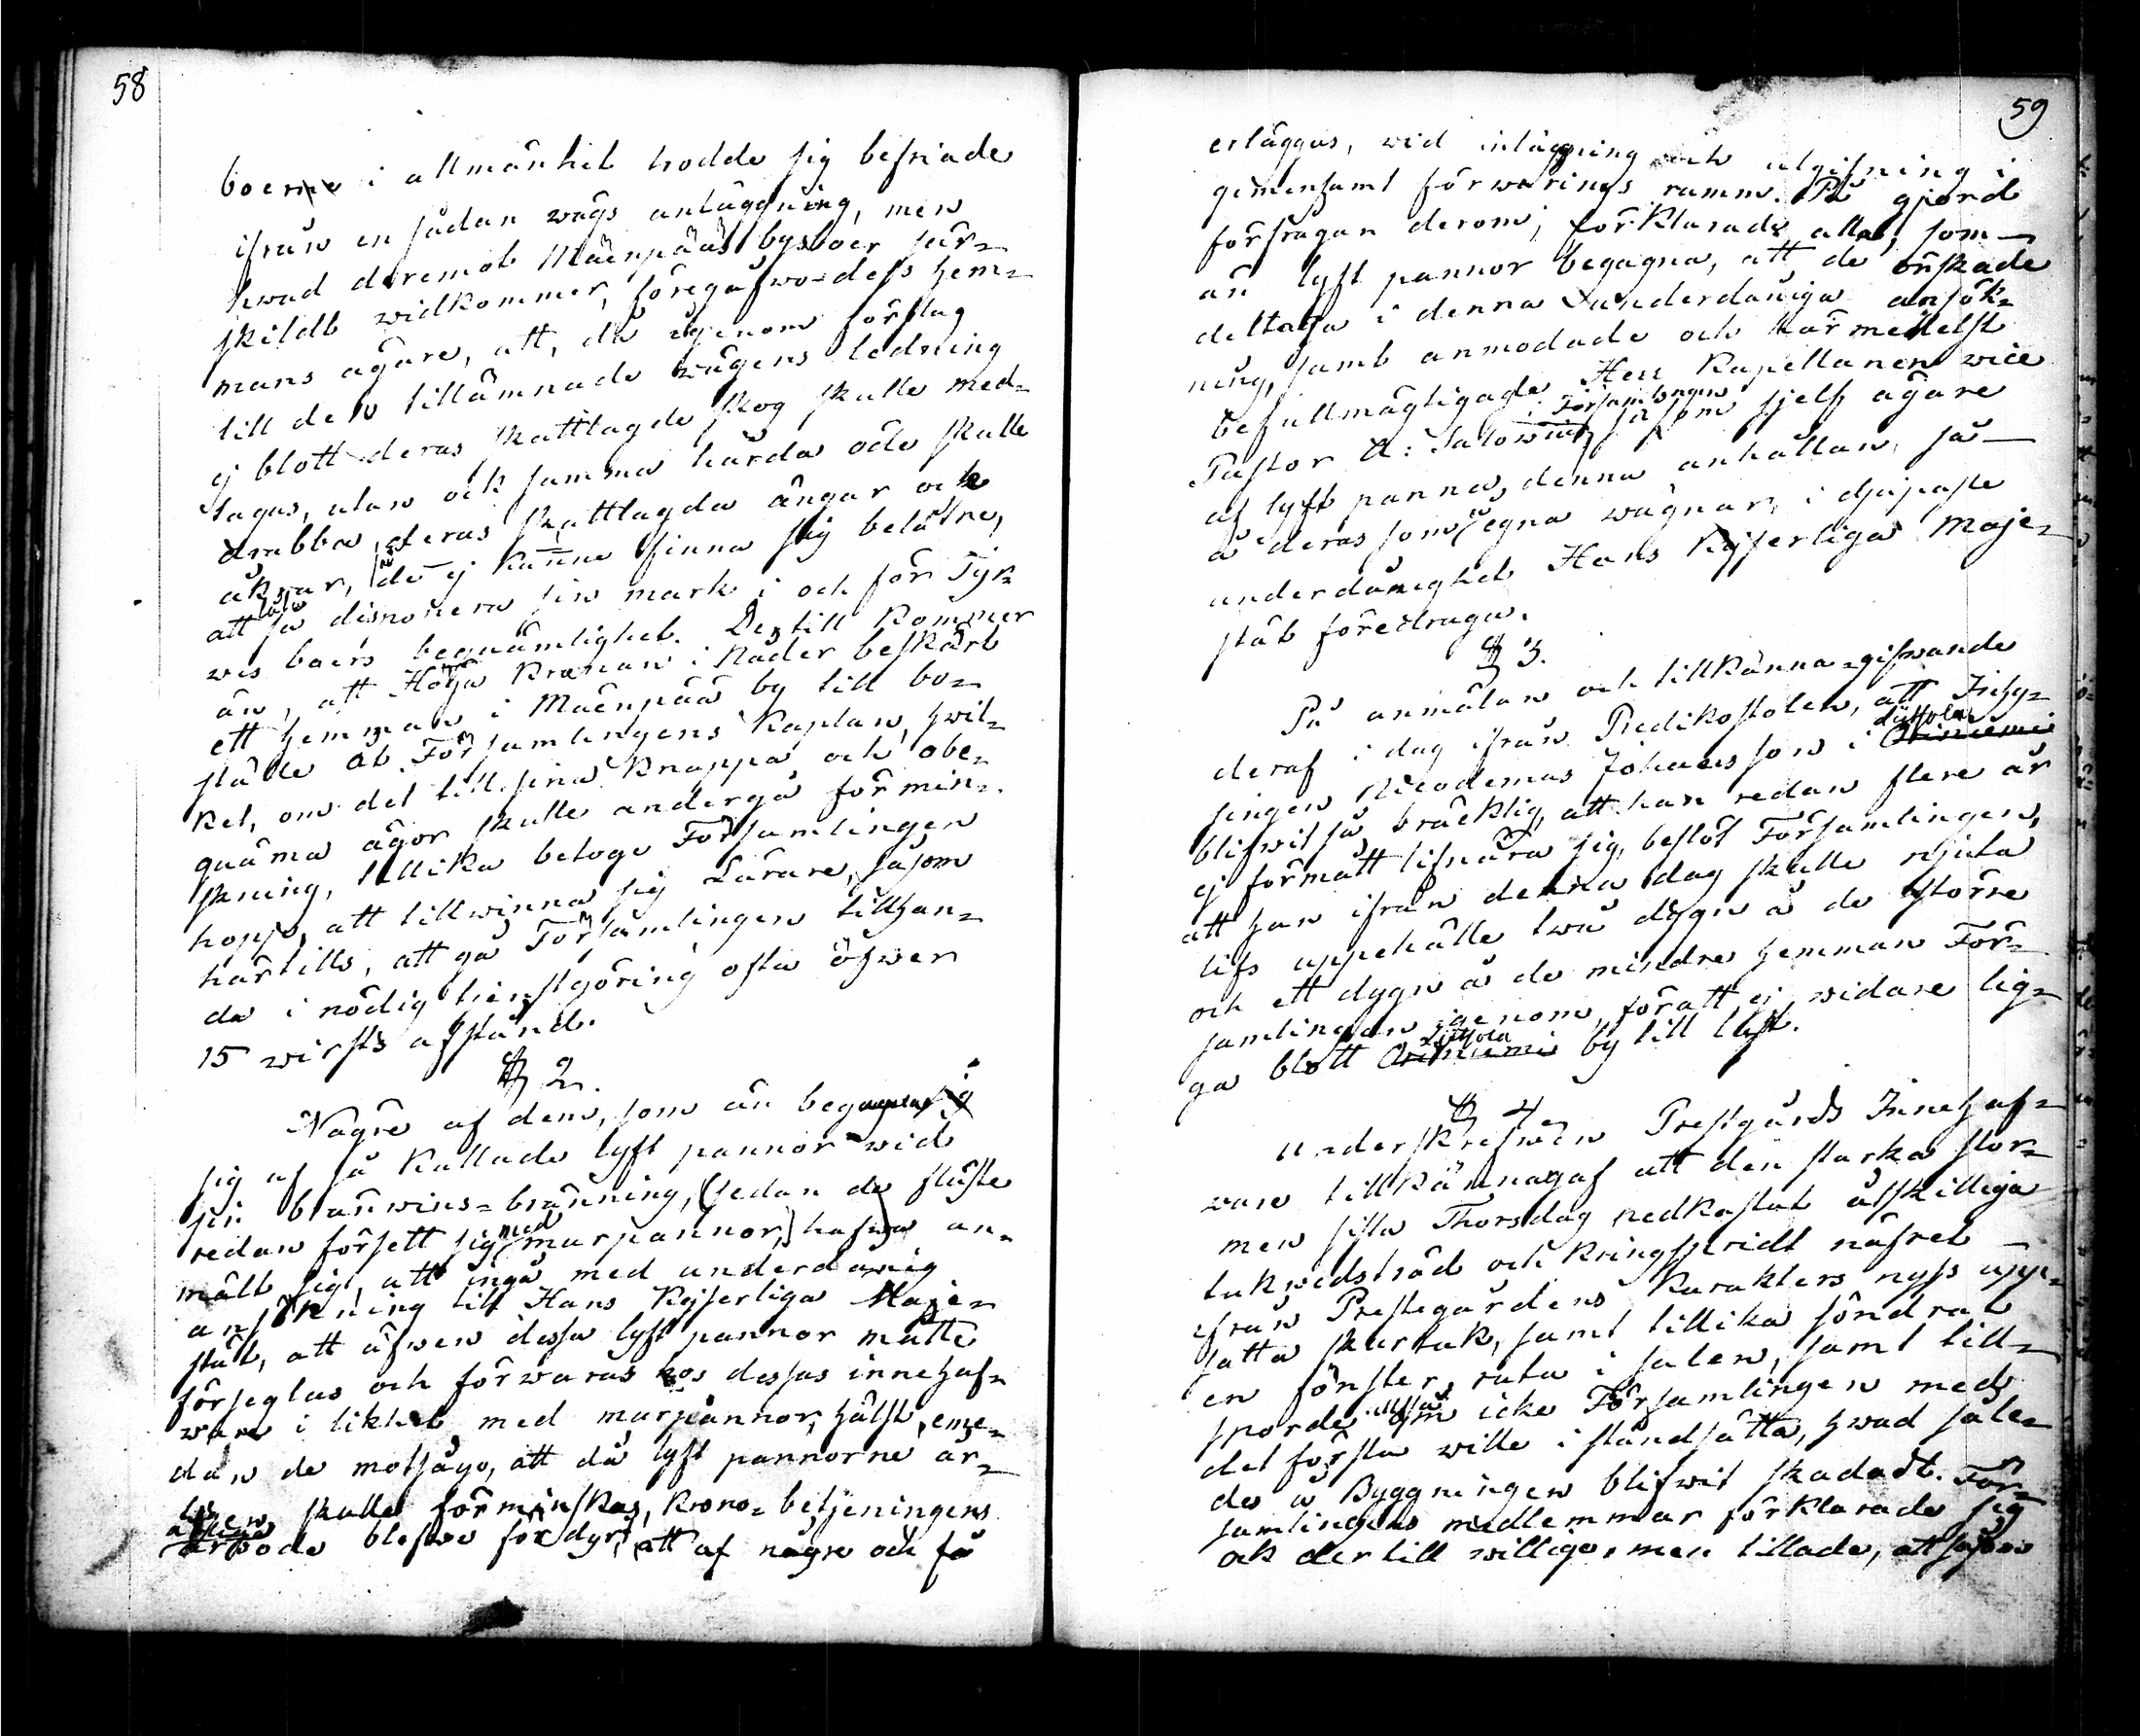 58
boerne i allmänhet trodde sig befriade
ifrån en sådan wägs anläggning, men
hwad deremot Mäenpääs bysboer sär-
skildt widkommer, föregåfwo dess hem-
mans ägare, att, då igenom förslag
till den tillämnade wägens ledning
ej blott deras skattlagde skog skulle med-
tagas, utan ock samma hårda öde skulle
drabba deras skattlagda ängar och
åkrar, de ej kunna finna sig belåtne,
att så disponera sin mark i och för Tyr-
wis boers beqvämlighet. Dertill kommer
än, att Höga Kronan i Nåder beskärt
ett hemman i Mäenpää by till bo-
ställe åt Församlingens Kaplan, hwil-
ket, om det till sina knappa och obe-
quäma ägor skulle undergå förmin-
skning, tillika betoge Församlingen
hopp, att tillwinna sig Lärare, såsom
härtills, att gå Församlingen tillhan-
da i nödig tienstgöring ofta öfwer
15 wirsts afstånd.
§ 2.
Någre af dem, som än begagna
sig af så kallade lyft pannor wid
sin bränwins-bränning, (sedan de fläste
redan försett sig med murpannor,) hafwa an-
mält sig, att ingå med underdånig
ansökning till Hans Kejserliga Maje-
stät, att äfwen dessa lyft pannor måtte
förseglas och förwaras hos dessas innehaf-
ware i likhet med murpannor, hälst, eme-
dan de motsågo, att då lyft pannorne år-
ligen skulle förminskas, krono-betjeningens
arbode blefwe för dyrt, att af någre och få
59
erläggas, wid inläggning och utgifning i
gemensamt förwarings rumm. På gjord
förfrågan derom, förklarade alla, som
än lyft pannor begagna, att de önskade
deltaga i denna underdåniga ansök-
ning, samt anmodade och härmedelst
befullmägtigade Herr Kapellanen vice
i Församlingen
Pastor A: Salowius, såsom sjelf ägare
af lyft panna, denna anhållan, så
å deras som egna wägnar, i djupaste
underdånighet Hans Kejserliga Maje-
stät föredraga.
§ 3.
På anmälan och tillkänna-gifwande
deraf i dag ifrån Predikostolen, att Inhy-
singen Nicodemus Johansson i
blifwit så bräcklig, att han redan flere år
ej förmått lifnära sig, beslöt Församlingen,
att han ifrån denna dag skulle njuta
lifs uppehälle twå dygn å de större
och ett dygn å de mindre hemman För-
samlingen igenom, för att ej widare lig-
ga blott by till last.
§ 4
Underskrefwen Prestgårds Innehaf-
ware tillkännagaf att den starka stor-
men sista Thorsdag nedkastat åtskilliga
takwedsträd och kringspridt näfret
ifrån Prestegårdens Karakters nyss upp-
satta skurtak, samt tillika söndrat
en fönster ruta i salen, samt till-
sporde alltså om icke Församlingen med
det första wille i ståndsätta, hwad såle-
des å Byggningen blifwit skadadt. För-
samlingens medlemmar förklarade sig
ock dertill willige, men tillade, att såsom